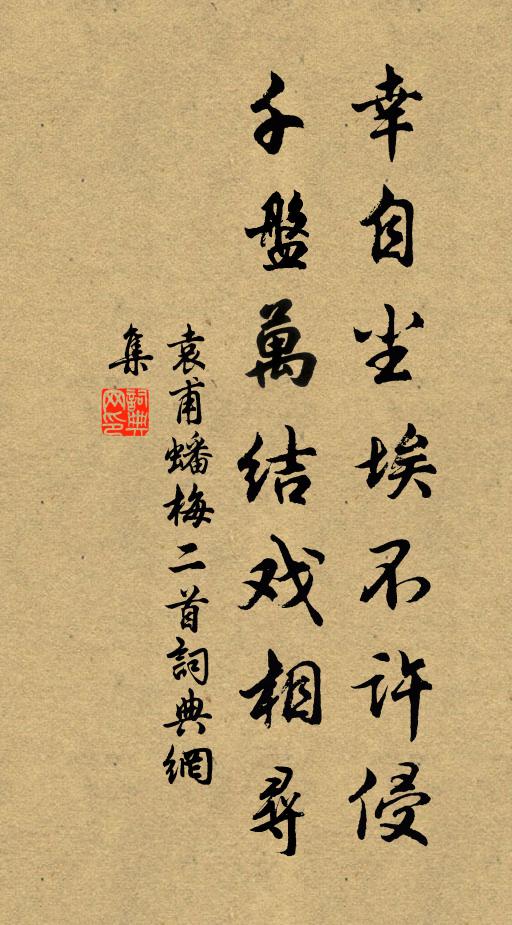 幸自尘埃不许侵
千盤萬结戏相尋
袁甫蟠梅二首詞典網
集
詞典网印